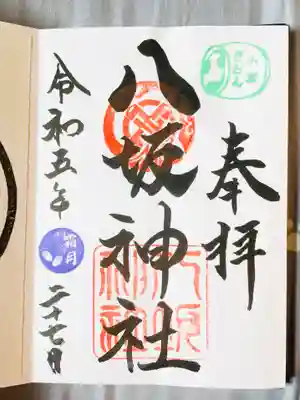 奉拝
八坂神社
八坂神社
令和五年
霜月
二十七日